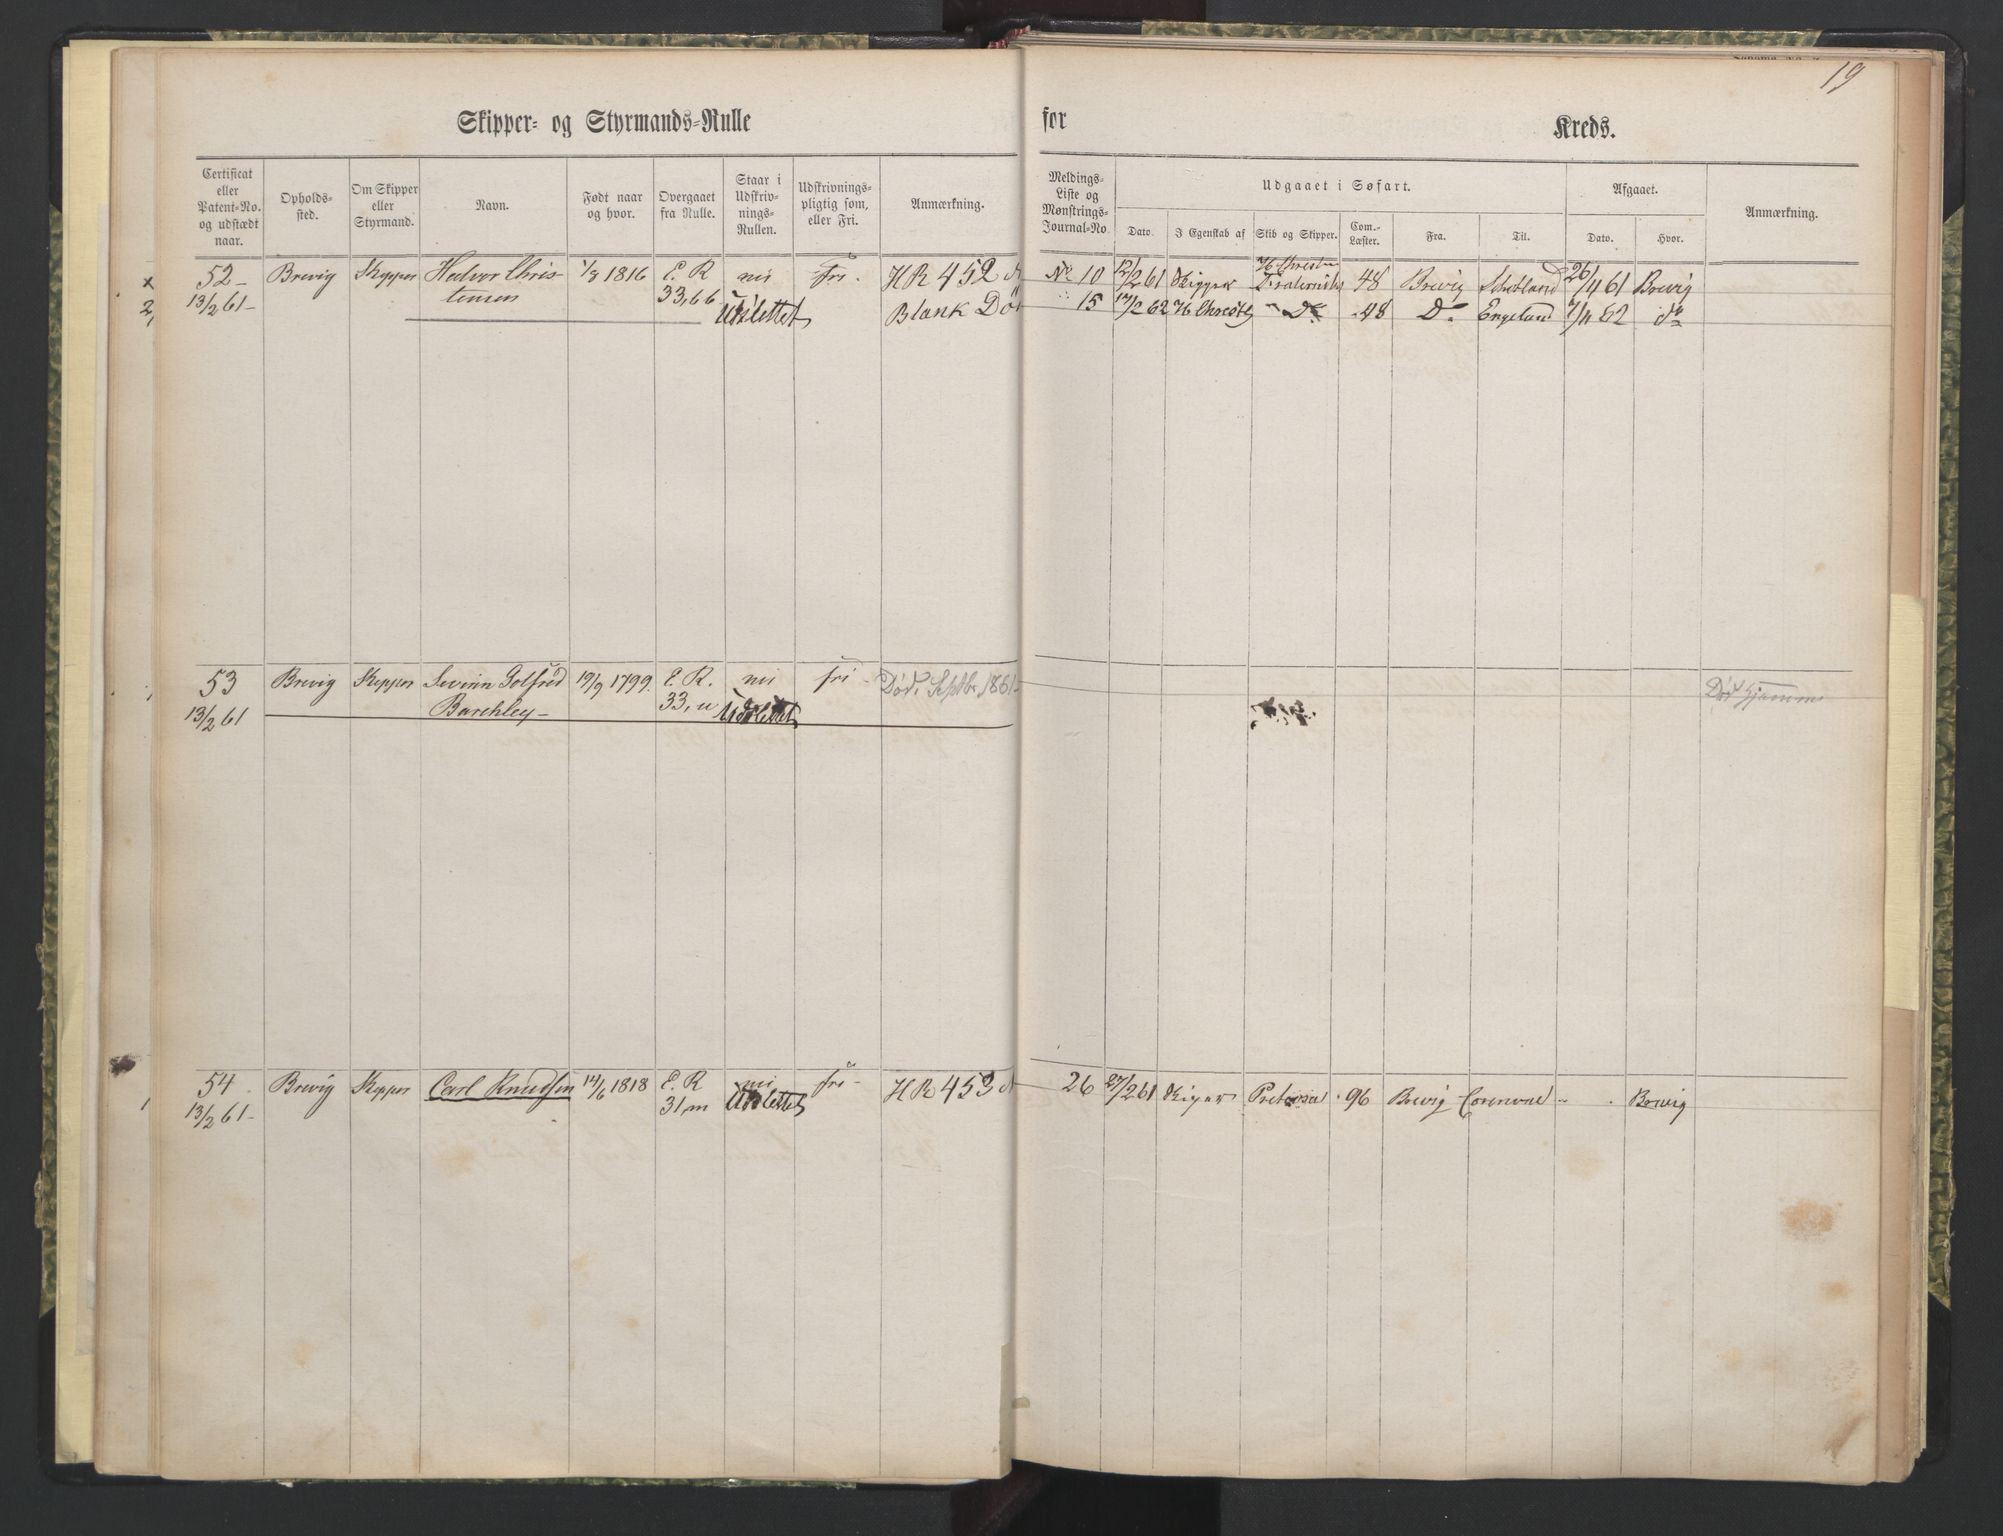 19
Skipper- og Styrmands-Rulle
for
Kreds.
Certificat eller Patent-No. og udstædt naar.
Opholds-sted.
Om Skipper eller Styrmand.
Navn.
Født naar og hvor.
Overgaaet fra Rulle.
Staar i Udskriv-nings-Rullen.
Udskrivnings-pligtig som, eller Fri.
Anmærkning.
Meldings-Liste og Mønstrings-Journal-No.
Udgaaet i Søfart.
Dato. I Egenskab af Skib og Skipper. Com.-Læster. Fra. Til.
Afgaaet.
Dato. Hvor.
Anmærkning.
52 Brevig Skipper Halvor Chris 1/8 1816 E. R nei Fri. HR 452
13/2 61 tensen 33,66 Udslettet Blank Død
No 10 12/2 61 H Christ 48 Brevig 26/4 61 Brevig
15 17/2 62 Do 48 Do Engeland 7/11 62 do
53 Brevig Skipper 19/9 1799. E. R. nei fri Død. Septbr. 1861
13/2 61 Barchley 33, u Udslettet
Død hjemme
54 Brevig Skipper Carl Knudsen 14/6 1818 E. R nei fri HR 453
13/2 61 31, m Udslettet
26 27/2 61 96 Brevig Brevig